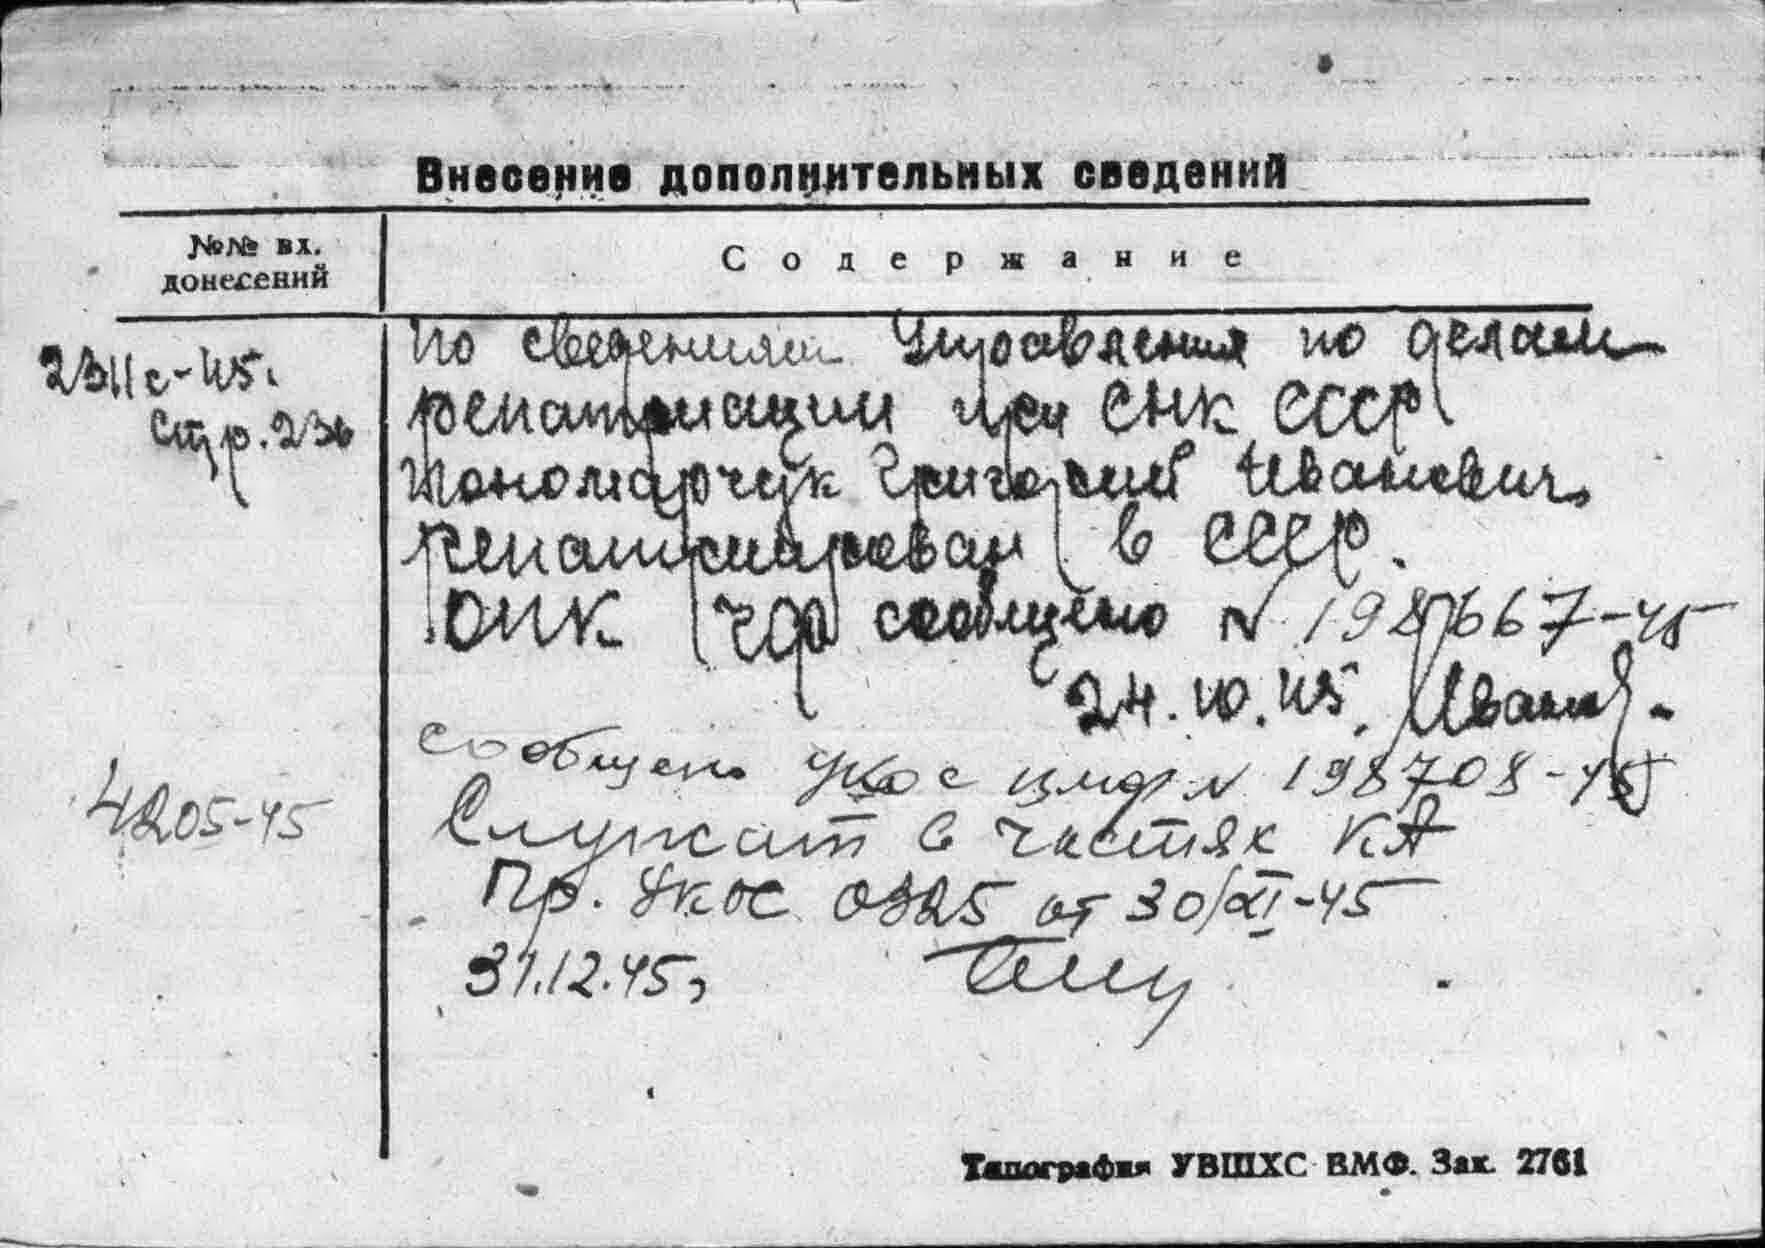 Внесение дополнительных сведений
№№ вх.
донесений
Содержание
2311с-45.
Стр. 236
По сведениям Управления по делам
репатриации при СНК СССР
Пономарчук Григорий Иванович
репатриирован в СССР.
ОПК ЧФ сообщено N 198667-45
24.10.45.
сообщено УКОС ЦМФ N 198708-45
4205-45
Служит в частях КА
Пр. УКОС 0325 от 30/XI-45
31.12.45,
Типография УВШХС ВМФ. Зак. 2761